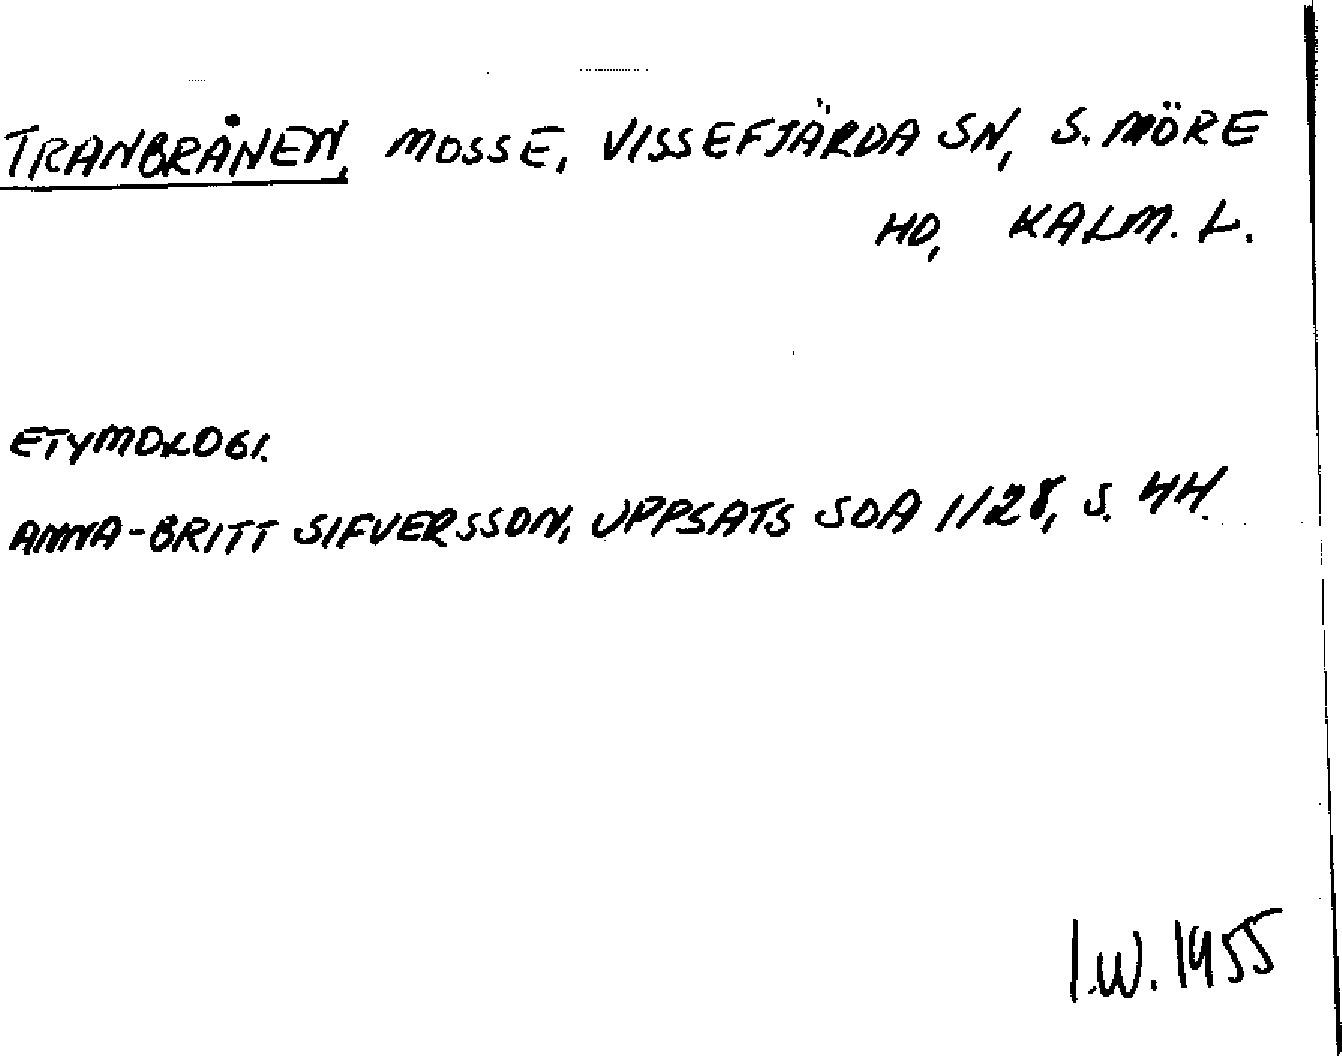 TRANBRÅNEN, MOSSE, VISSEFJÄRDA SN, S. MÖRE
HD, KALM. L.
ETYMOLOGI.
ANNA-BRITT SIFVERSSON, UPPSATS SOA 1/28, S. 44.
I.W. 1955